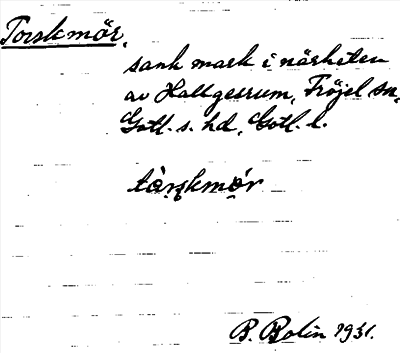 Torskmör,
sank mark i närheten
av Hallgesrum, Fröjel sn,
Gotl. s. hd, Gotl. l.
tàrskmör
B. Bolin 1931.